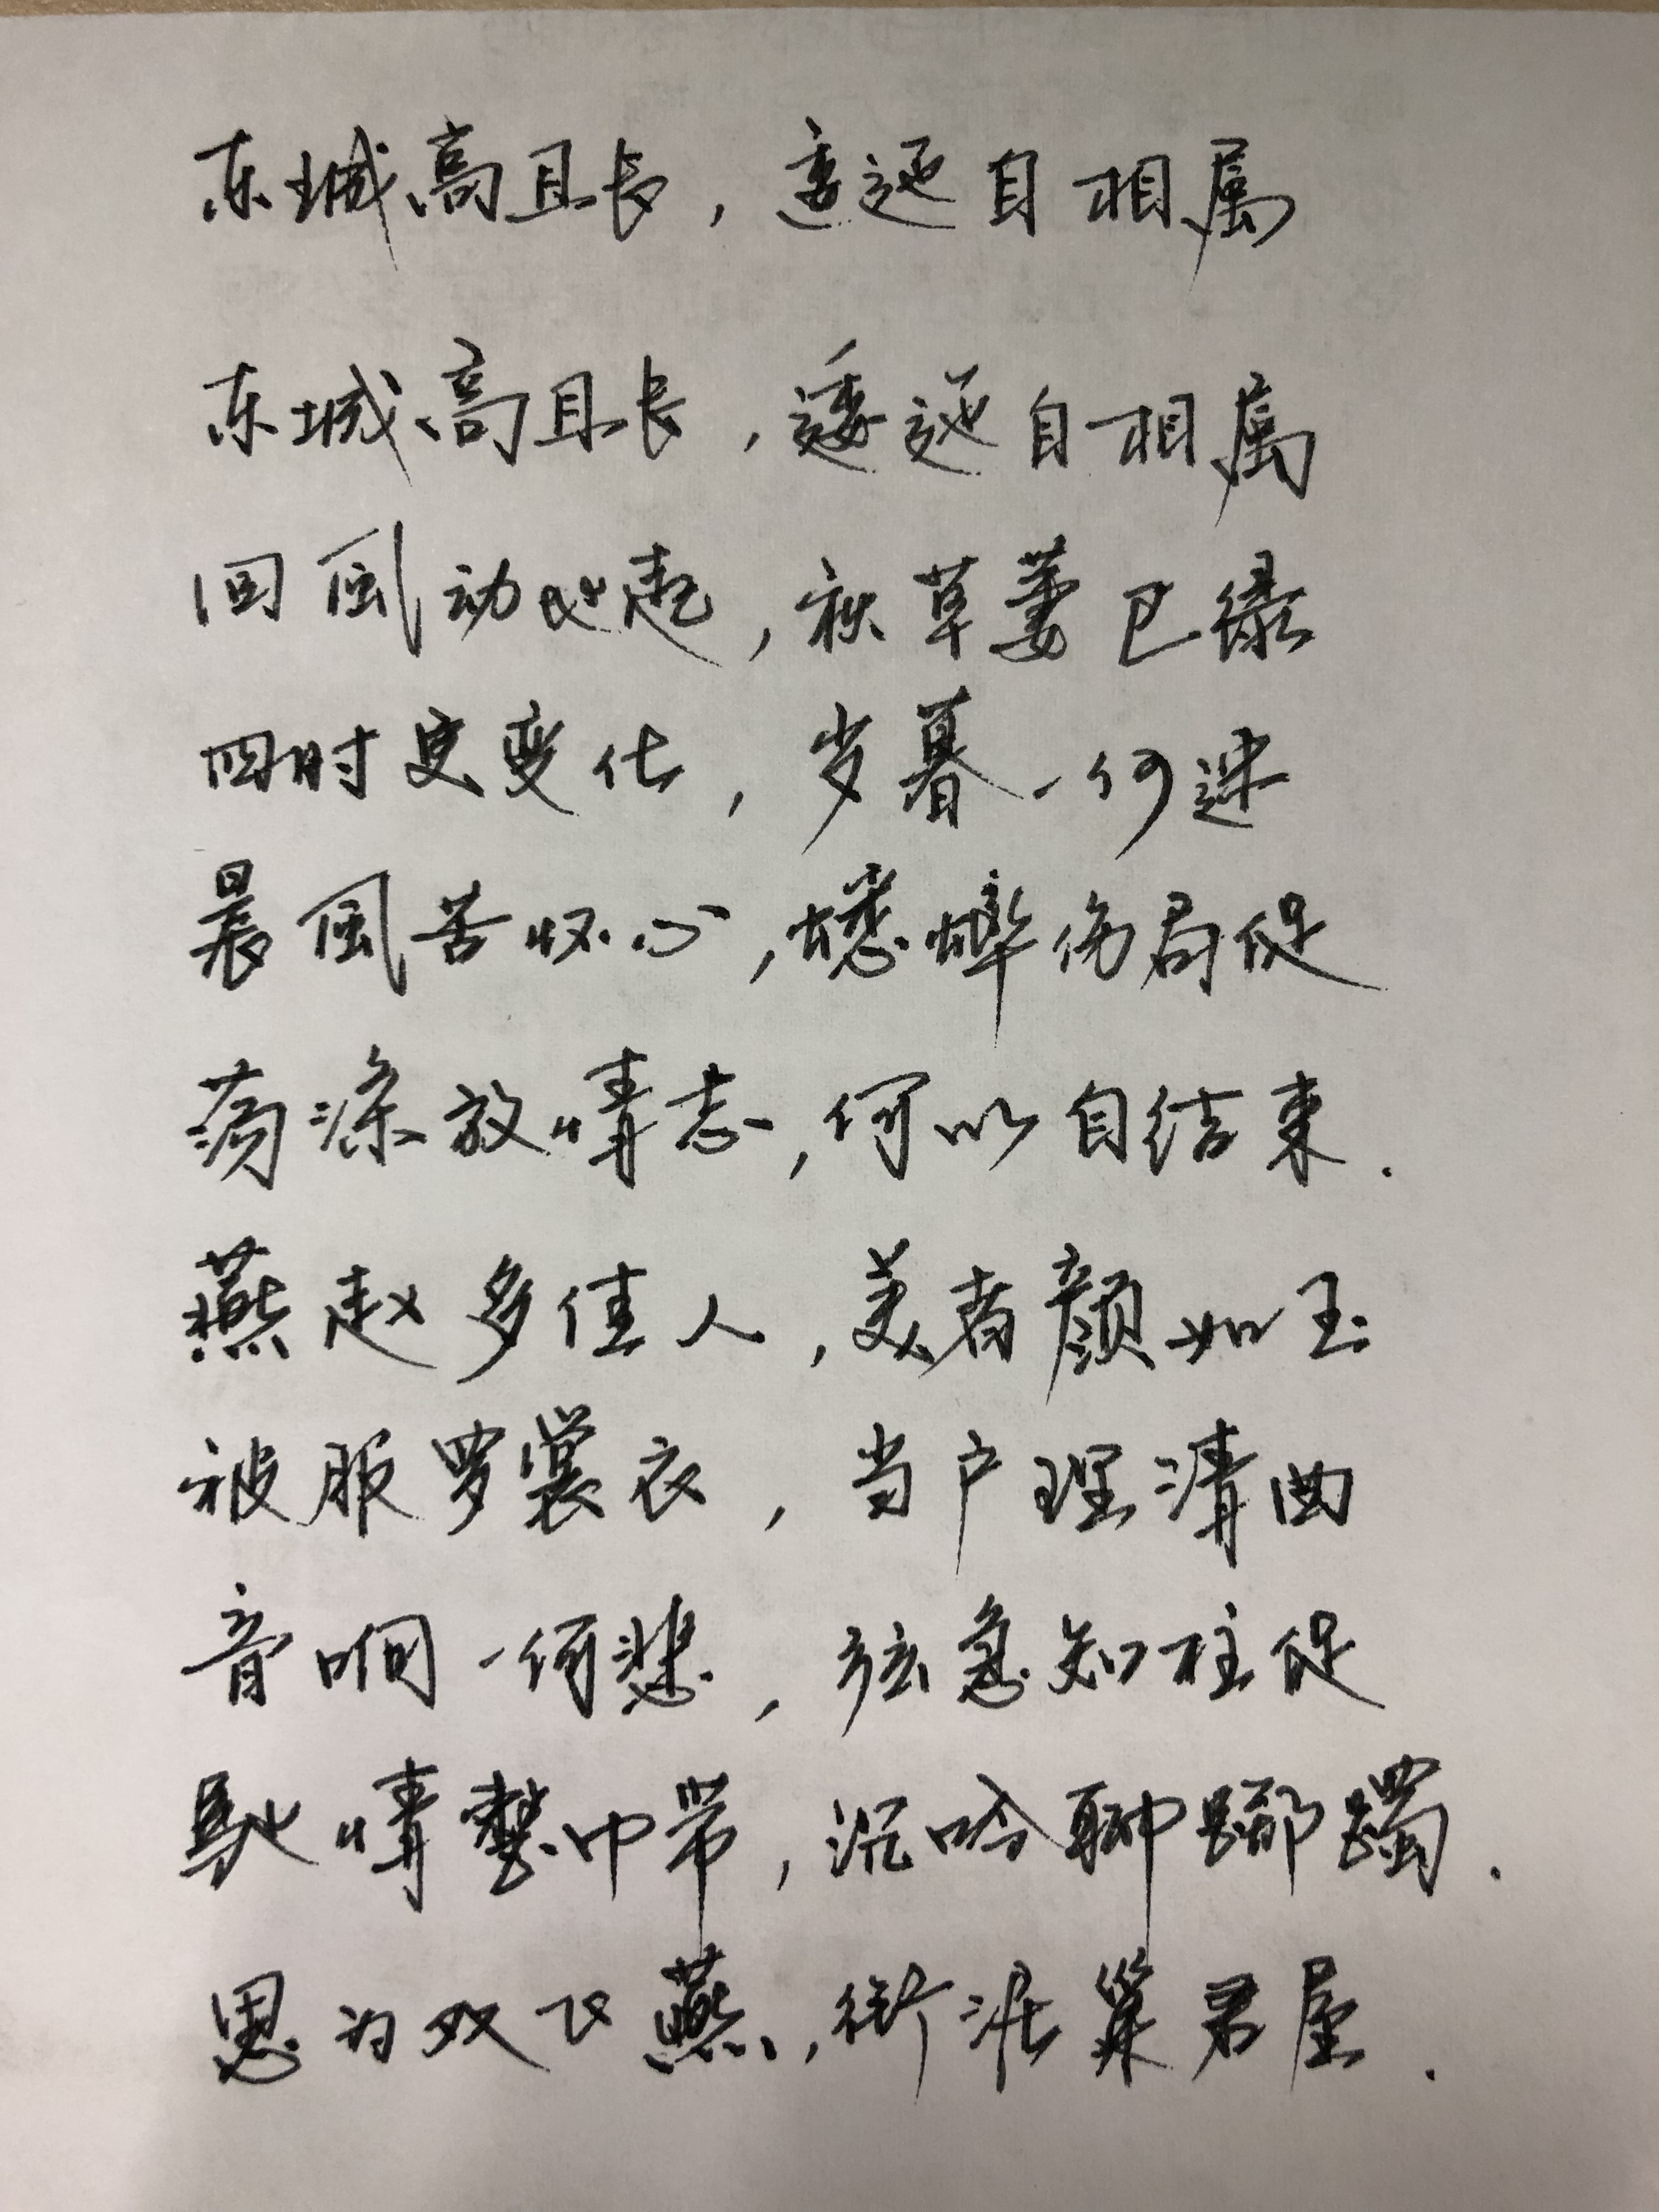 东城高且长，逶迤自相属
东城高且长，逶迤自相属
回風动地起，秋草萋已绿
四时更变化，岁暮一何速
晨風苦怀心，蟋蟀伤局促
荡涤放情志，何以自结束.
燕赵多佳人，美者颜如玉
被服罗裳衣，当户理清曲
音响一何悲，弦急知柱促
馳情整巾带，沉吟聊踯躅.
思为双飞燕，衔泥巢君屋.